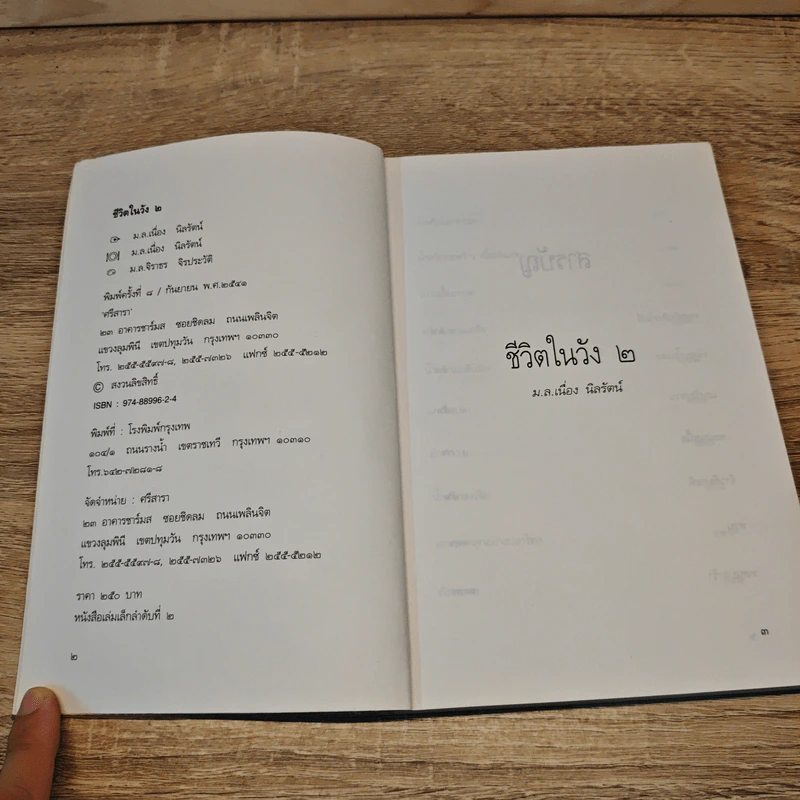 ชีวิตในวัง ๒
ม.ล.เนื่อง นิลรัตน์
ม.ล.เนื่อง นิลรัตน์
ม.ล.จิราธร จิรประวัติ
พิมพ์ครั้งที่ ๘ / กันยายน พ.ศ.๒๕๔๑
'ศรีสารา'
๒๓ อาคารชาร์มส ซอยชิดลม ถนนเพลินจิต
แขวงลุมพินี เขตปทุมวัน กรุงเทพฯ ๑๐๓๓๐
โทร. ๒๕๕-๕๕๙๗-๘, ๒๕๕-๗๓๒๖ แฟกซ์ ๒๕๕-๕๒๑๒
© สงวนลิขสิทธิ์
ISBN : 974-88996-2-4
พิมพ์ที่ : โรงพิมพ์กรุงเทพ
๑๐๔/๑ ถนนรางน้ำ เขตราชเทวี กรุงเทพฯ ๑๐๓๑๐
โทร.๖๔๒-๗๒๘๑-๘
จัดจำหน่าย : ศรีสารา
๒๓ อาคารชาร์มส ซอยชิดลม ถนนเพลินจิต
แขวงลุมพินี เขตปทุมวัน กรุงเทพฯ ๑๐๓๓๐
โทร. ๒๕๕-๕๕๙๗-๘, ๒๕๕-๗๓๒๖ แฟกซ์ ๒๕๕-๕๒๑๒
ราคา ๒๕๐ บาท
หนังสือเล่มเล็กลำดับที่ ๒
๒
ชีวิตในวัง ๒
ม.ล.เนื่อง นิลรัตน์
๓